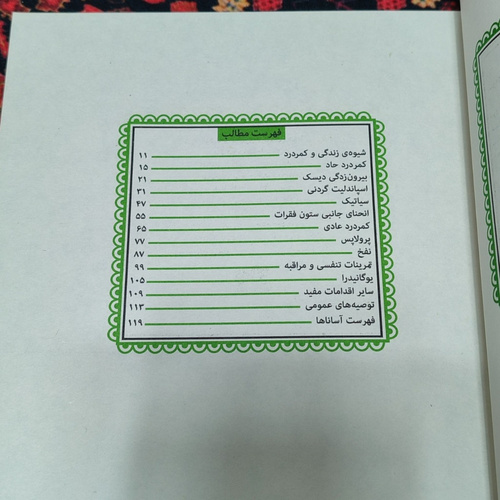 فهرست مطالب
شیوه‌ی زندگی و کمردرد ۱۱
کمردرد حاد ۱۵
بیرون‌زدگی دیسک ۲۱
اسپاندلیت گردنی ۳۱
سیاتیک ۴۷
انحنای جانبی ستون فقرات ۵۵
کمردرد عادی ۶۵
پرولاپس ۷۷
نفخ ۸۷
تمرینات تنفسی و مراقبه ۹۹
یوگانیدرا ۱۰۵
سایر اقدامات مفید ۱۰۹
توصیه‌های عمومی ۱۱۳
فهرست آساناها ۱۱۹